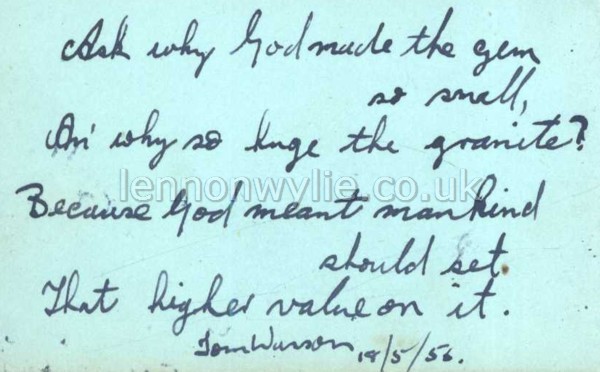 Ask why God made the gem
so small,
An' why so huge the granite?
lennonwylie.co.uk
Because God meant mankind
should set
That higher value on it.
Tom 18/5/56.